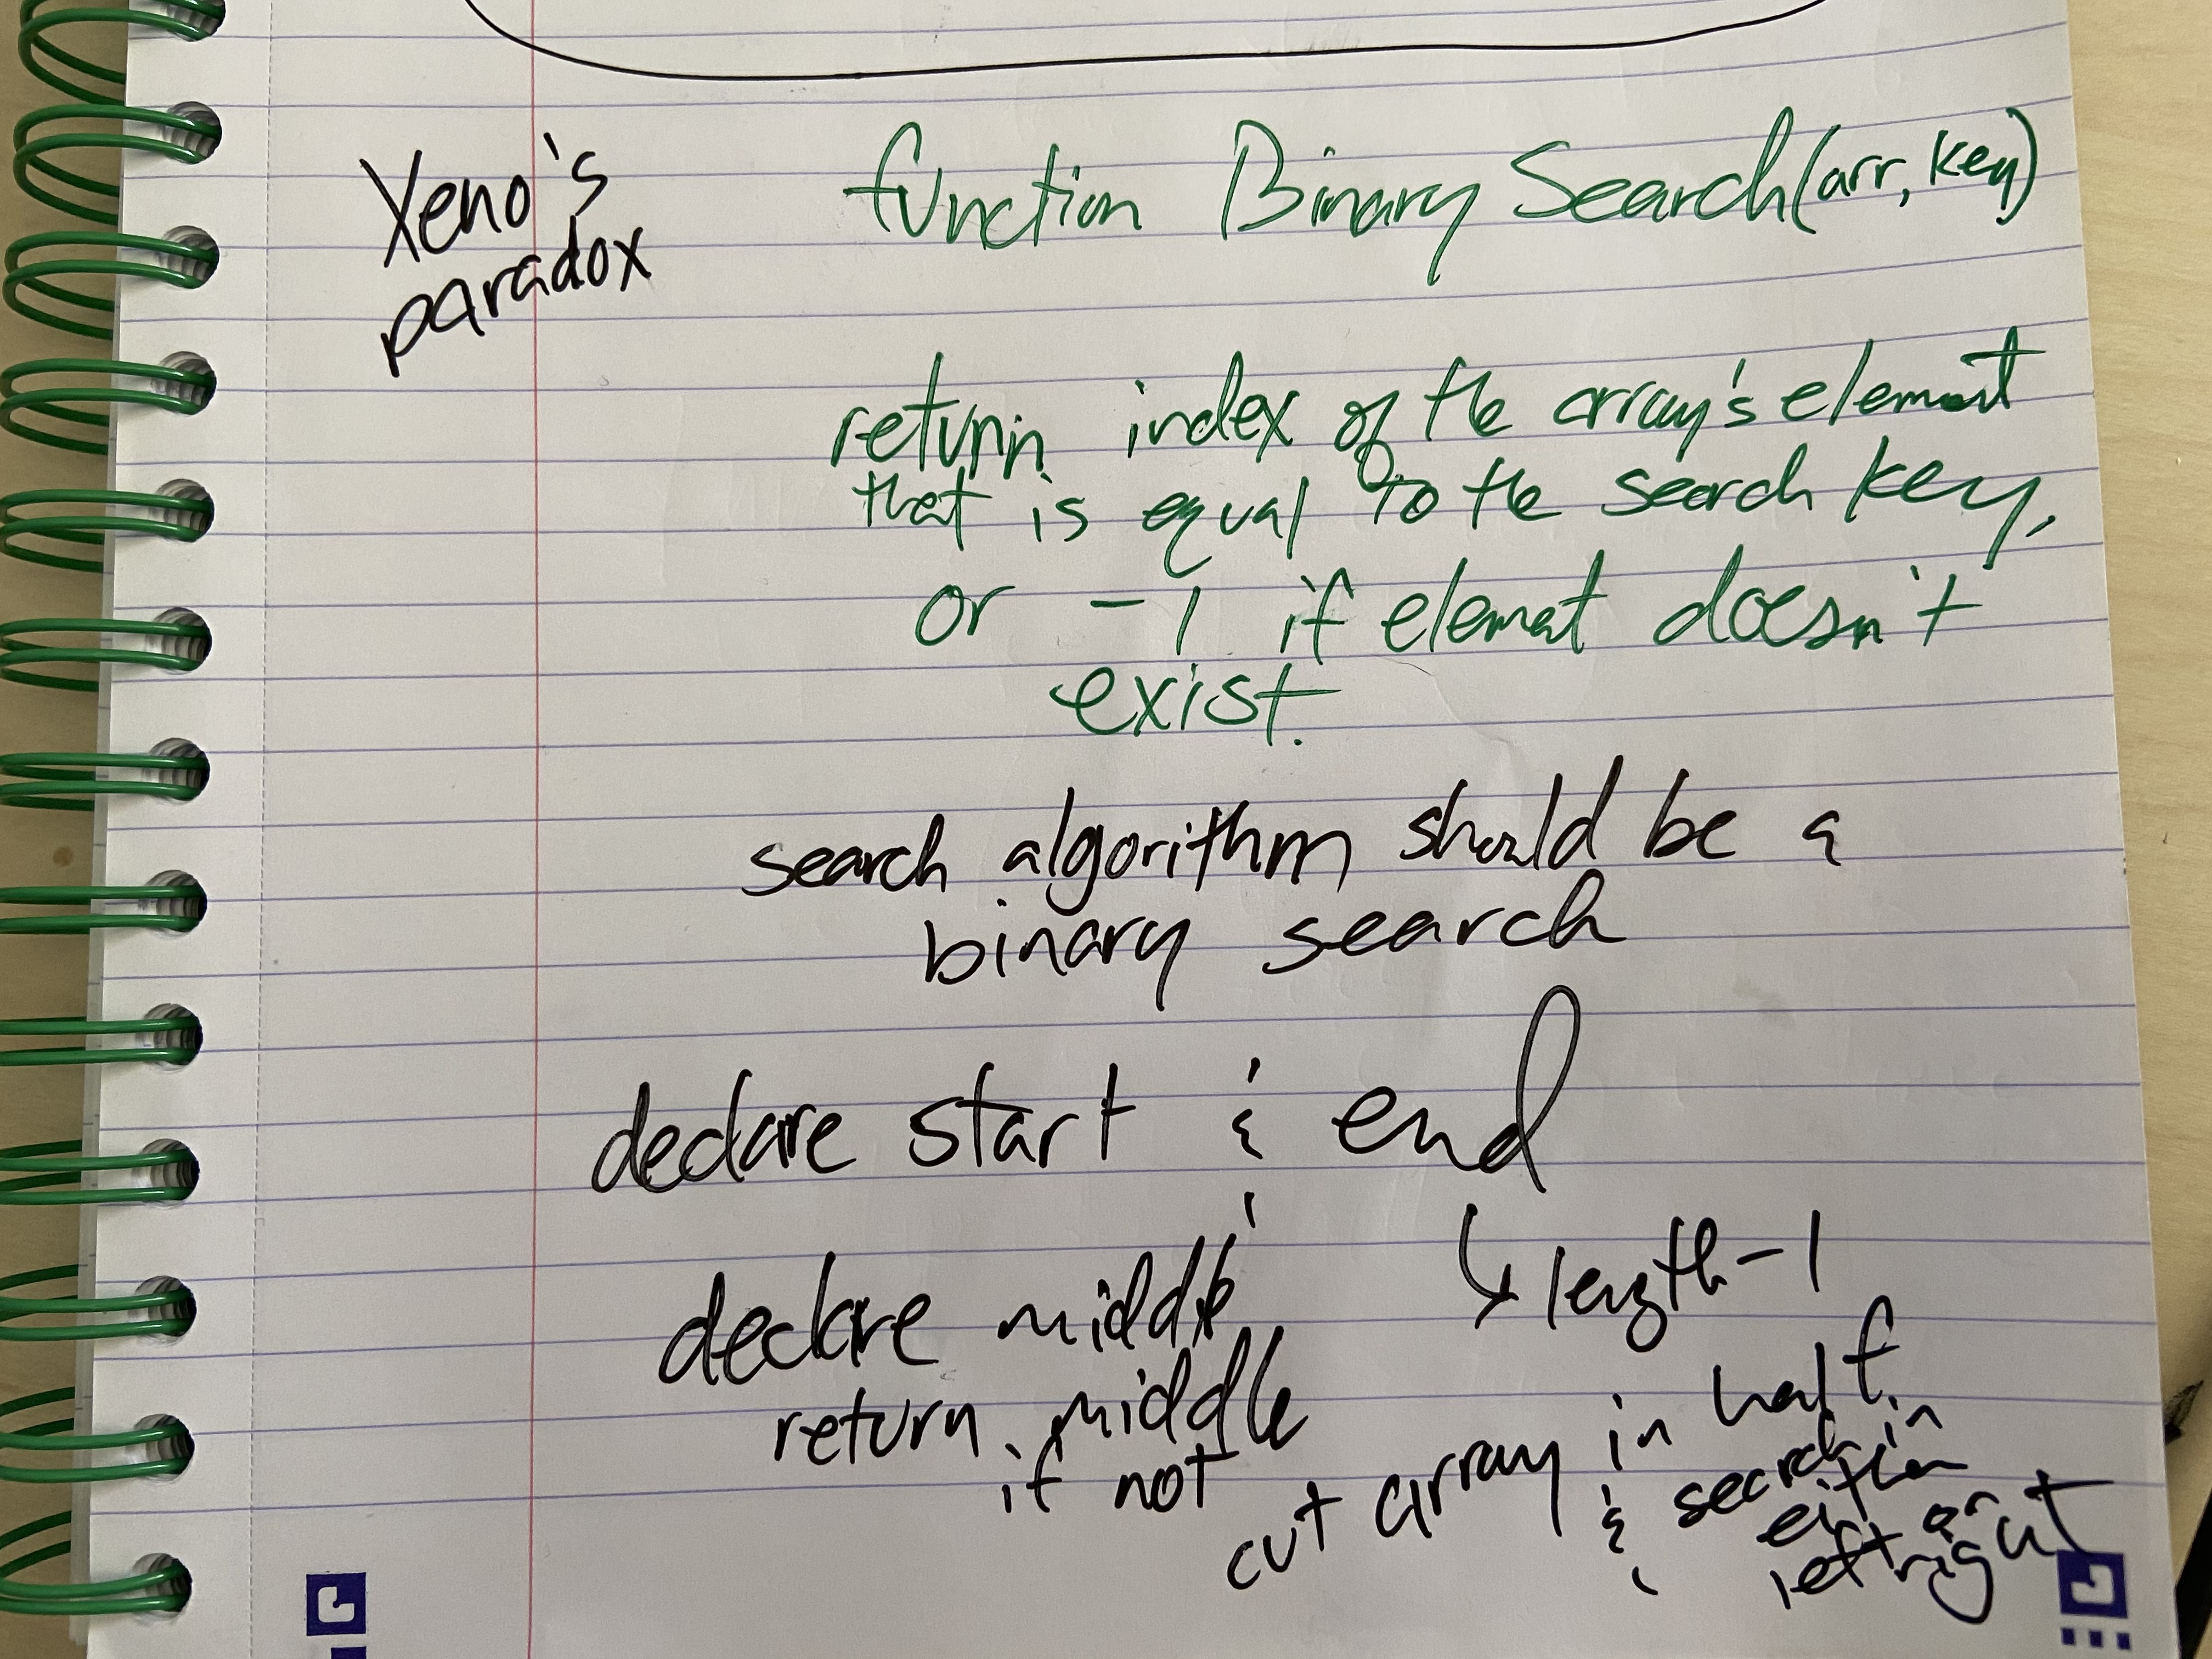 Xeno's
paradox
function Binary Search(arr, key)
return index of the array's element
that is equal to the search key,
or -1 if element doesn't
exist.
search algorithm should be a
binary search
declare start & end
↳ length-1
declare middle
return middle
if not
cut array in half
& search in
either
left or
right